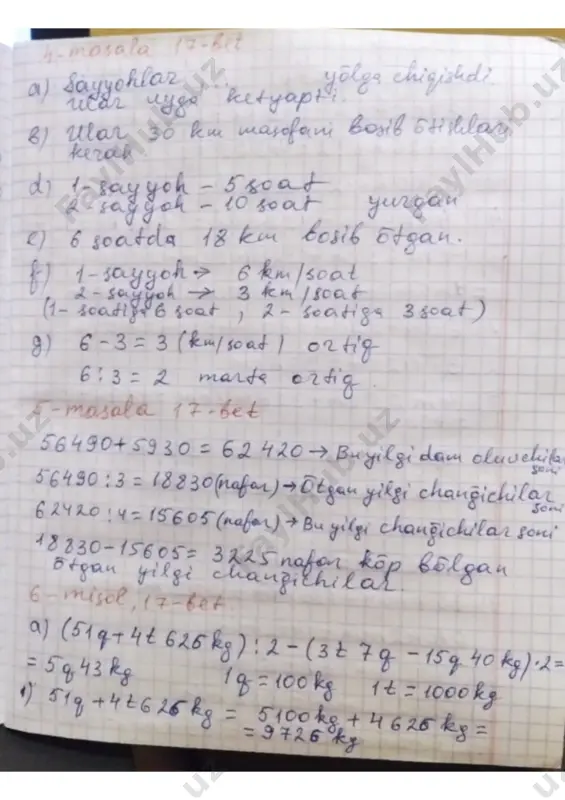 4-masala 17-bet
a) Sayyohlar ... yōlga chiqishdi
ular uyga ketyapti.
b) Ular 30 km masofani bosib ōtishlari
kerak
d) 1-sayyoh - 5 soat
2-sayyoh - 10 soat yurgan
e) 6 soatda 18 km bosib ōtgan.
f) 1-sayyoh → 6 km/soat
2-sayyoh → 3 km/soat
(1-soatiga 6 soat, 2-soatiga 3 soat)
g) 6-3=3 (km/soat) ortiq
6:3=2 marta ortiq
5-masala 17-bet
56490+5930=62420→ Bu yilgi dam oluvchilar
soni
56490:3=18830(nafar)→Ōtgan yilgi changichilar
soni
62420:4=15605(nafar)→ Bu yilgi changichilar soni
18830-15605=3225 nafar kōp bōlgan
ōtgan yilgi changichilar.
6-misol, 17-bet.
a) (51q+4t 626 kg):2-(3t 7q-15q 40kg)·2=
=5q 43kg 1q=100kg 1t=1000kg
1) 51q+4t 626 kg = 5100kg+4626kg=
=9726 kg
FaylHub.uz
FaylHub.uz
FaylHub.uz